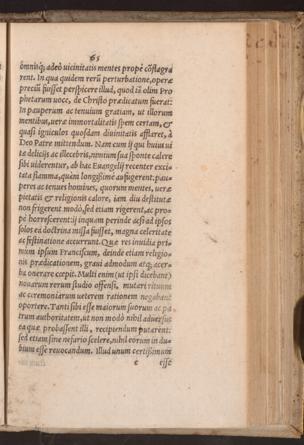 65
omnisq; adeò vicinitatis mentes propè cõflagra
rent. In qua quidem rerũ perturbatione, operæ
preciũ fuisset perspicere illud, quod iã olim Pro
phetarum uoce, de Christo prædicatum fuerat:
In pauperum ac tenuium gratiam, ut illorum
mentibus, ueræ immortalitatis spem certam, &
quasi igniculos quosdam diuinitatis afflaret, à
Deo Patre mittendum. Nam cum ij qui huius ui
tæ delicijs ac illecebris, nimium sua sponte calere
sibi uiderentur, ab hac Euangelij recenter exci
tata flamma, quàm longissimè aufugerent: pau-
peres ac tenues homines, quorum mentes, ueræ
pietatis & religionis calore, iam diu destitutæ
non frigerent modò, sed etiam rigerent, ac pro-
pè horrescerent: ij inquam perinde acsi ad ipsos
solos ea doctrina missa fuisset, magna celeritate
ac festinatione accurrunt. Quæ res inuidia pri-
mùm ipsum Franciscum, deinde etiam religio-
nis prædicationem, graui admodum atq; acer-
ba onerare cœpit. Multi enim (ut ipsi dicebant)
nouarum rerum studio offensi, mutari rituum
ac ceremoniarum ueterem rationem negabant
oportere. Tanti sibi esse maiorum suorum ac pa
trum authoritatem, ut non modò nihil aduersus
ea quæ probassent illi, recipiendum putarent:
sed etiam sine nefario scelere, nihil eorum in du-
bium esse reuocandum. Illud unum certissimum
e esse